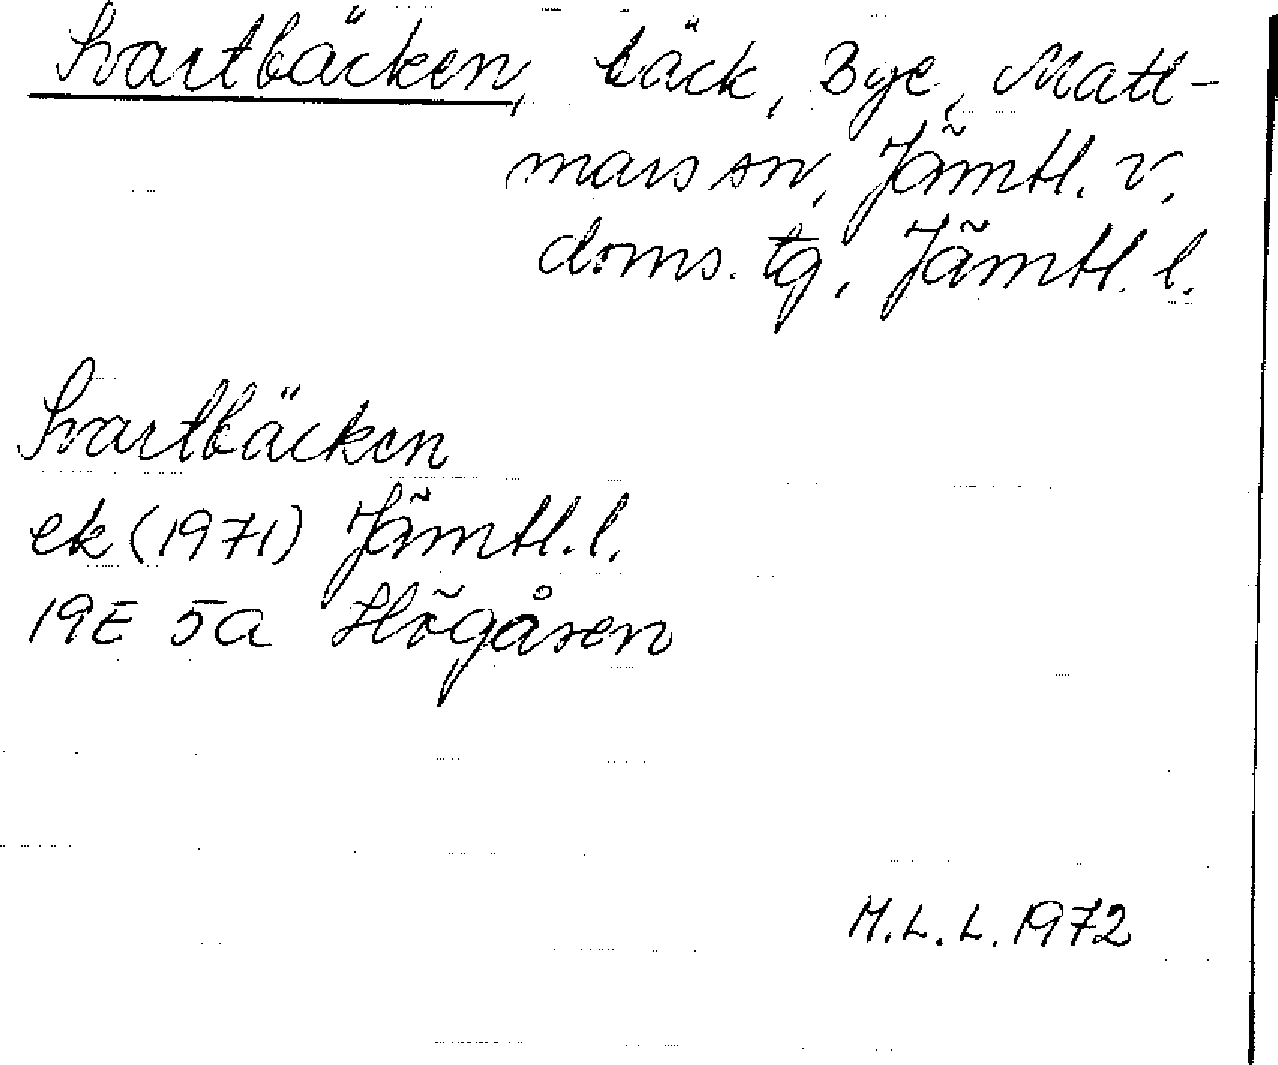 Svartbäcken, bäck, Bye, Matt-
mars sn, Jämtl. v.
doms. tg, Jämtl. l.
Svartbäcken
ek (1971) Jämtl. l.
19E 5a Högåsen
M.L.L. 1972